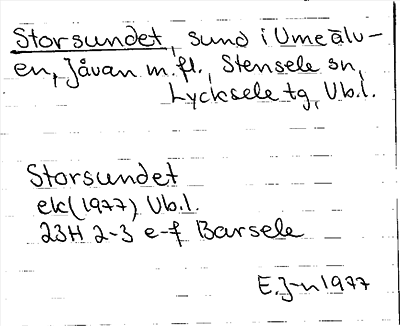 Storsundet, sund i Umeälv-
en, Jåvan m.fl., Stensele sn,
Lycksele tg, Vb.l.
Storsundet
ek (1977) Vb.l.
23H 2-3 e-f Barsele
E.J-n 1977